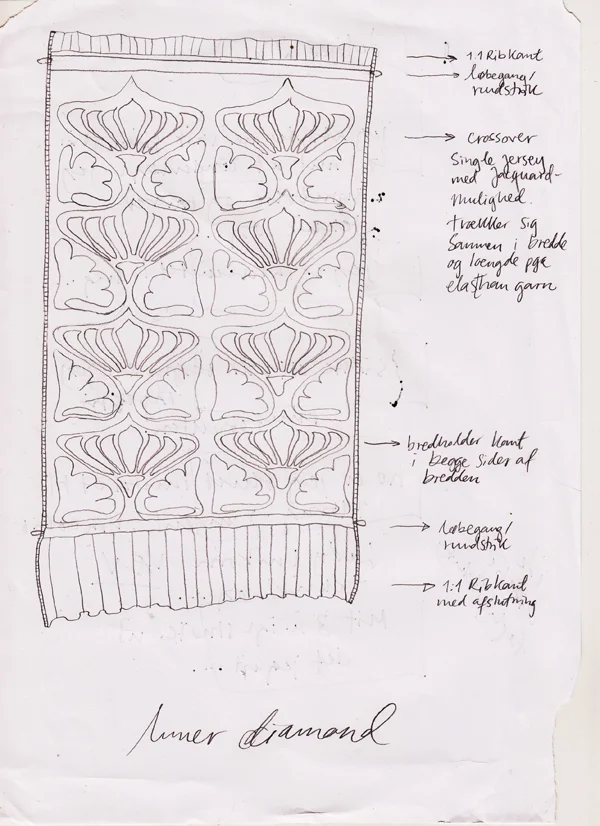 1:1 Ribkant
løbegang/
rundstrik
crossover
single jersey
med jacquard-
mulighed.
trækker sig
sammen i bredde
og længde pga
elasthan garn
bredholder kant
i begge sider af
bredden
løbegang/
rundstrik
1:1 Ribkant
med afslutning
Inner diamond